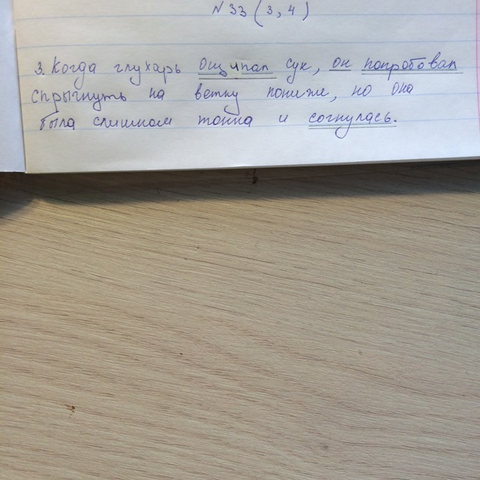 N 33 (3, 4)
3. Когда глухарь ощипал сук, он попробовал
спрыгнуть на ветку пониже, но она
была слишком тонка и согнулась.